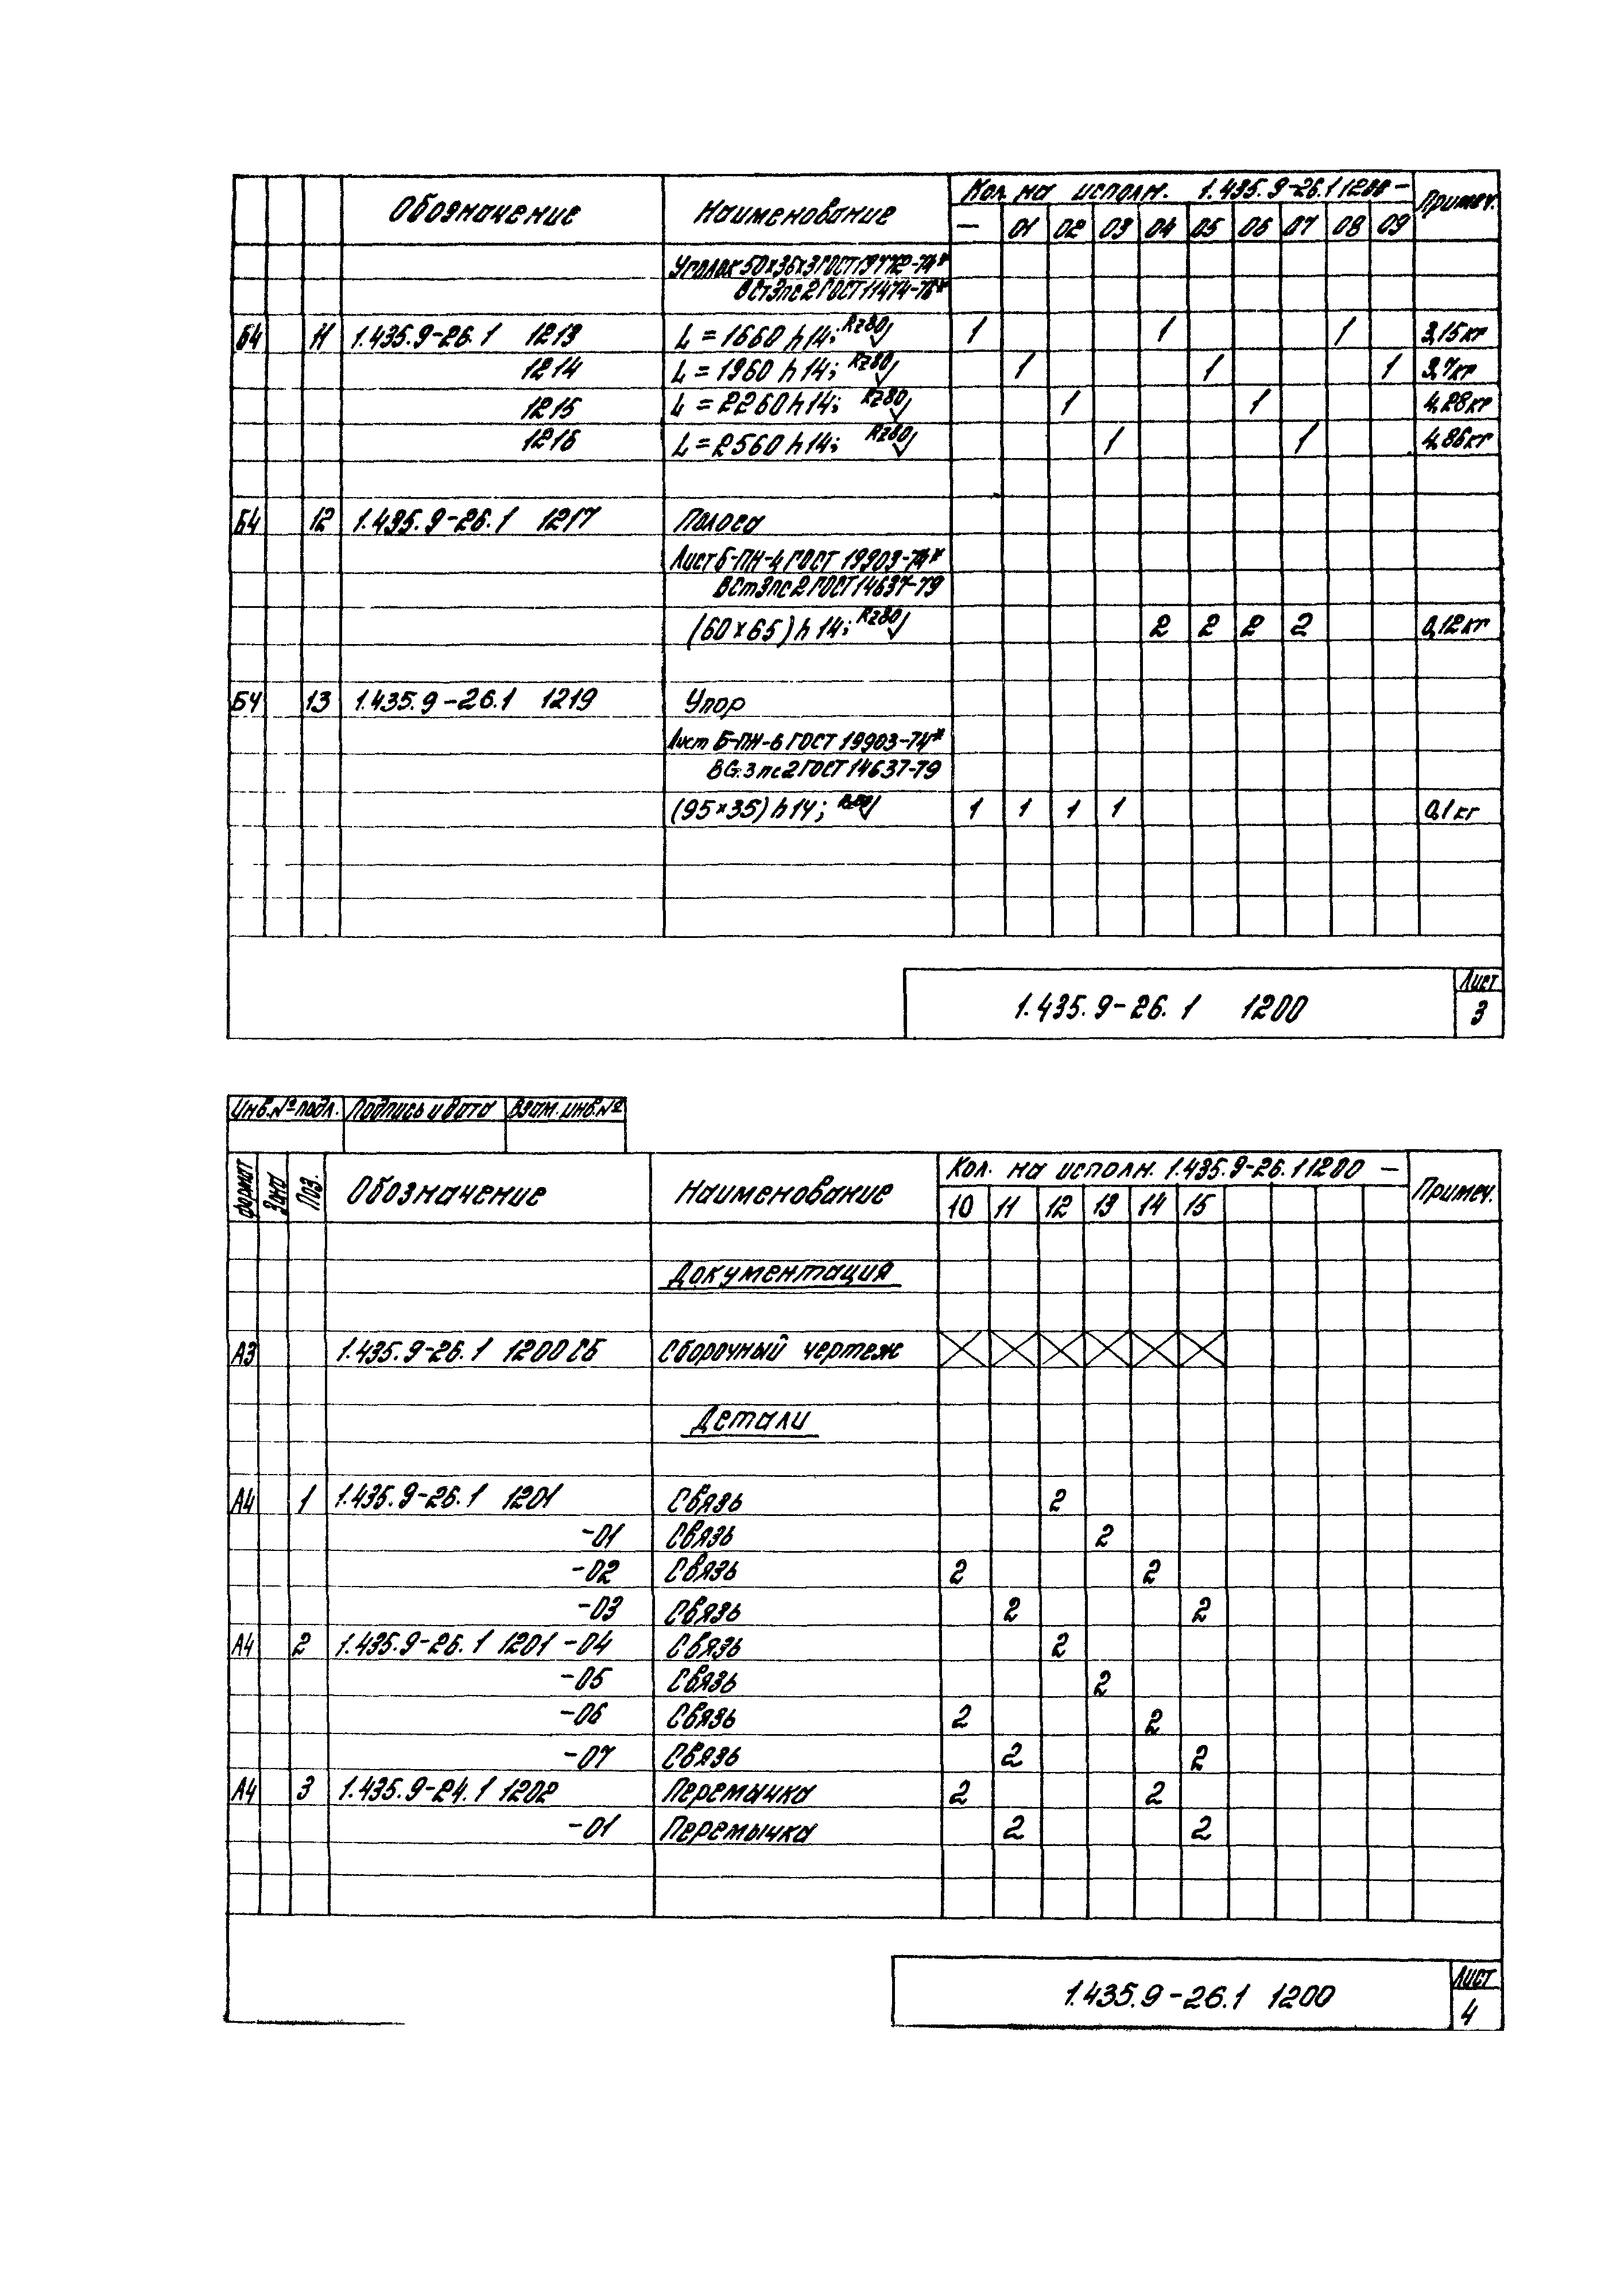 Обозначение Наименование Кол. на исполн. 1.435.9-26.1 1200 - Примеч.
— 01 02 03 04 05 06 07 08 09
Уголок 50х36х3 ГОСТ 19772-74*
ВСт3пс2 ГОСТ 11474-76*
Б4 11 1.435.9-26.1 1213 L = 1660 h14; Rz80 1 1 1 3,15кг
1214 L = 1960 h14; Rz80 1 1 1 3,7кг
1215 L = 2260 h14; Rz80 1 1 4,28кг
1216 L = 2560 h14; Rz80 1 1 4,86кг
Б4 12 1.435.9-26.1 1217 Полоса
Лист Б-ПН-4 ГОСТ 19903-74*
ВСт3пс2 ГОСТ 14637-79
(60х65) h14; Rz80 2 2 2 2 0,12кг
Б4 13 1.435.9-26.1 1219 Упор
Лист Б-ПН-6 ГОСТ 19903-74*
ВСт.3пс2 ГОСТ 14637-79
(95х35) h14; Rz80 1 1 1 1 0,1кг
1.435.9-26.1 1200 Лист
3
Инв.№ подл. Подпись и дата Взам. инв.№
Формат Зона Поз. Обозначение Наименование Кол. на исполн. 1.435.9-26.1 1200 — Примеч.
10 11 12 13 14 15
Документация
А3 1.435.9-26.1 1200СБ Сборочный чертеж
Детали
А4 1 1.435.9-26.1 1201 Связь 2
-01 Связь 2
-02 Связь 2 2
-03 Связь 2 2
А4 2 1.435.9-26.1 1201 -04 Связь 2
-05 Связь 2
-06 Связь 2 2
-07 Связь 2 2
А4 3 1.435.9-24.1 1202 Перемычка 2 2
-01 Перемычка 2 2
1.435.9-26.1 1200 Лист
4